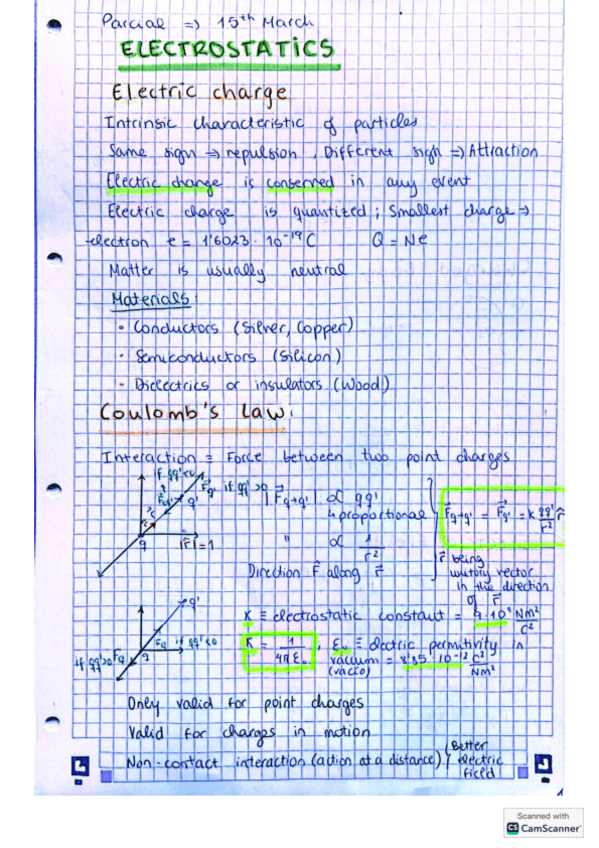 Parcial => 15th March
ELECTROSTATICS
Electric charge
Intrinsic characteristic of particles
Same sign => repulsion, Different sign => Attraction
Electric charge is conserved in any event
Electric charge is quantized; Smallest charge =>
electron e = 1'6023 · 10⁻¹⁹ C Q = Ne
Matter is usually neutral
Materials:
- Conductors (Silver, Copper)
- Semiconductors (Silicon)
- Dielectrics or insulators (Wood)
Coulomb's Law:
Interaction ≡ Force between two point charges
if qq'<0
F q' if qq'>0 |F q→q'| ∝ qq'
↳ proportional
F q→q' = F q' = K qq'/r² r̂
q |r̂|=1 " ∝ 1/r²
Direction F along r
r̂ being unitory vector in the direction of r
K ≡ electrostatic constant = 9·10⁹ Nm²/C²
q'
Fq if qq'<0
if qq'>0 Fq q
K = 1/4πε₀, ε₀ ≡ electric permitivity in vacuum = 8'85·10⁻¹² C²/Nm²
(vacío)
Only valid for point charges
Valid for charges in motion
Non-contact interaction (action at a distance) / Better electric field
Scanned with
CS CamScanner